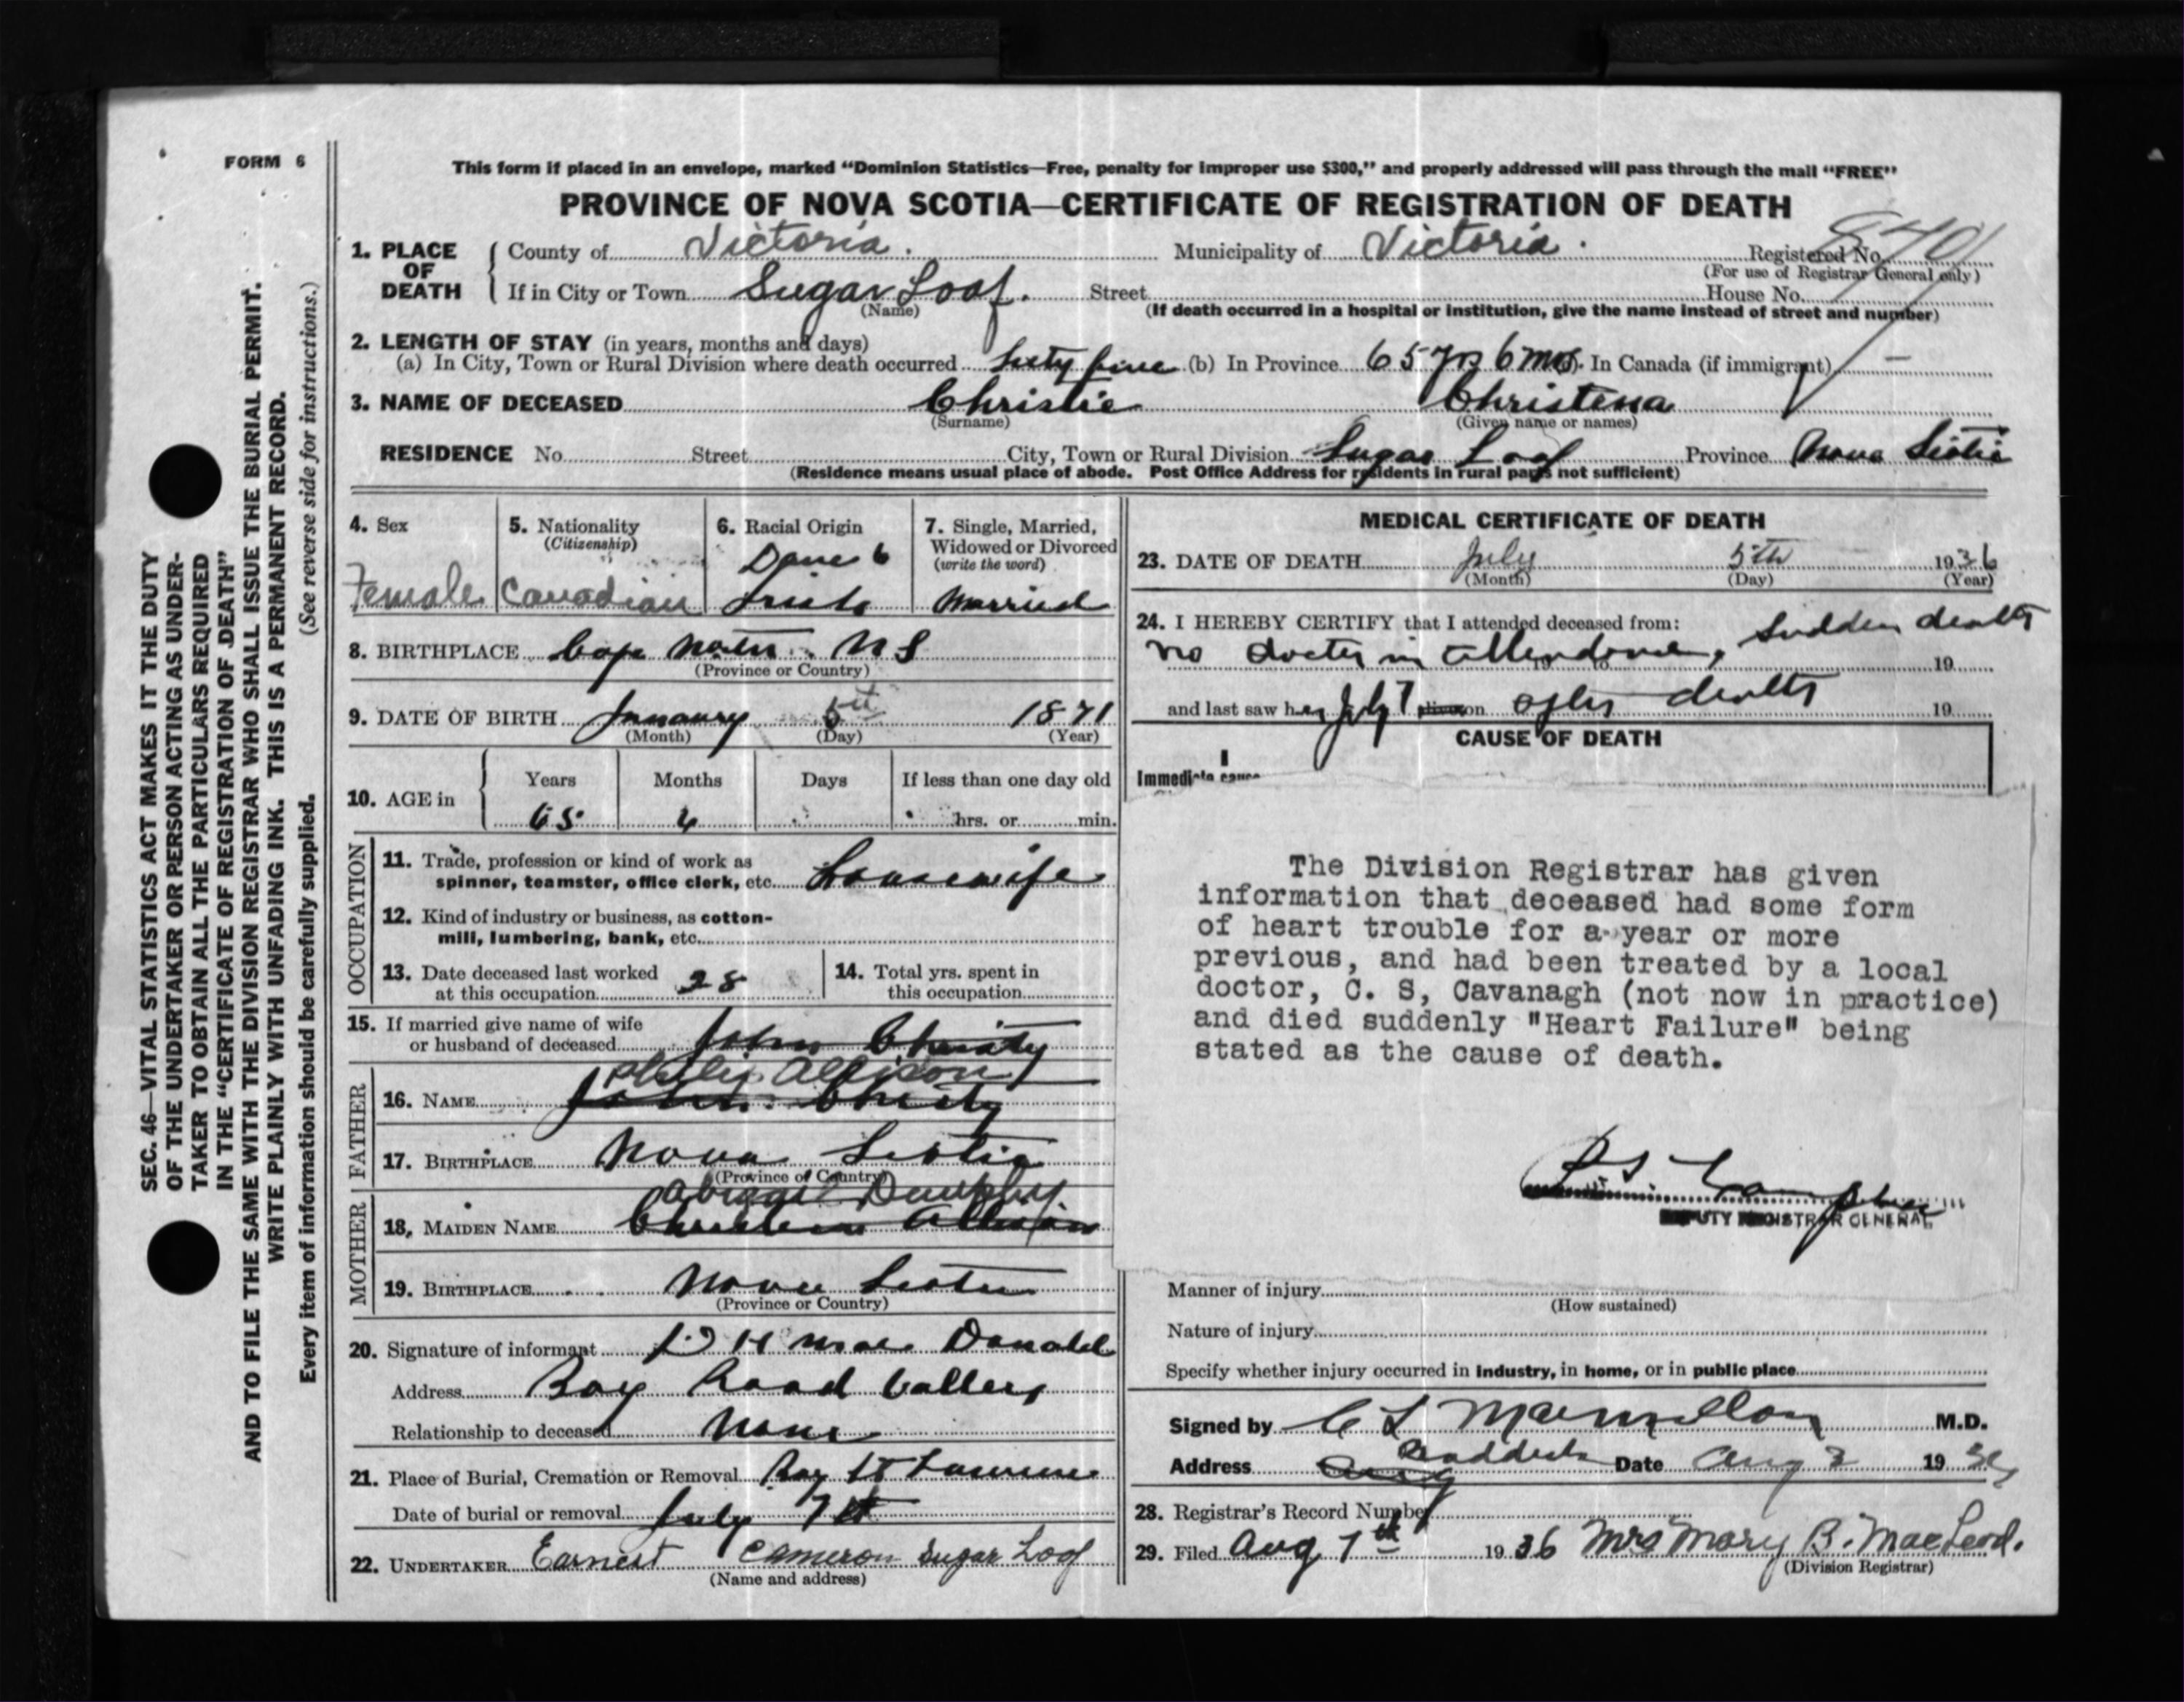 FORM 6
This form if placed in an envelope, marked “Dominion Statistics—Free, penalty for improper use $300,” and properly addressed will pass through the mail “FREE”
PROVINCE OF NOVA SCOTIA—CERTIFICATE OF REGISTRATION OF DEATH
1. PLACE OF DEATH County of Victoria. Municipality of Victoria. Registered No.
(For use of Registrar General only)
If in City or Town Sugar Loaf. Street House No.
(Name) (If death occurred in a hospital or institution, give the name instead of street and number)
2. LENGTH OF STAY (in years, months and days)
(a) In City, Town or Rural Division where death occurred Sixty five (b) In Province 65 yrs 6 mos. In Canada (if immigrant) —
3. NAME OF DECEASED Christie Christena
(Surname) (Given name or names)
RESIDENCE No. Street City, Town or Rural Division Sugar Loaf Province Nova Scotia
(Residence means usual place of abode. Post Office Address for residents in rural parts not sufficient)
4. Sex
Female
5. Nationality
(Citizenship)
Canadian
6. Racial Origin
Irish
7. Single, Married,
Widowed or Divorced
(write the word)
Married
8. BIRTHPLACE Cape North N S
(Province or Country)
9. DATE OF BIRTH January 5th 1871
(Month) (Day) (Year)
10. AGE in Years Months Days If less than one day old
65 6 hrs. or min.
OCCUPATION
11. Trade, profession or kind of work as
spinner, teamster, office clerk, etc. housewife
12. Kind of industry or business, as cotton-
mill, lumbering, bank, etc.
13. Date deceased last worked
at this occupation 28
14. Total yrs. spent in
this occupation
15. If married give name of wife
or husband of deceased John Christy
FATHER
Allison
16. NAME John Christy
17. BIRTHPLACE Nova Scotia
(Province of Country)
MOTHER
Abigail Dunphy
18. MAIDEN NAME Christena Allison
19. BIRTHPLACE Nova Scotia
(Province or Country)
20. Signature of informant H MacDonald
Address Bay Road Valley
Relationship to deceased None
21. Place of Burial, Cremation or Removal Bay St Lawrence
Date of burial or removal July 7th
22. UNDERTAKER Earnest Cameron Sugar Loaf
(Name and address)
MEDICAL CERTIFICATE OF DEATH
23. DATE OF DEATH July 5th 1936
(Month) (Day) (Year)
24. I HEREBY CERTIFY that I attended deceased from:
no doctor in attendance, Sudden death 19
and last saw her July 7 alive on after death 19
CAUSE OF DEATH
I
Immediate cause
The Division Registrar has given
information that deceased had some form
of heart trouble for a year or more
previous, and had been treated by a local
doctor, C. S, Cavanagh (not now in practice)
and died suddenly "Heart Failure" being
stated as the cause of death.
DEPUTY REGISTRAR GENERAL
Manner of injury
(How sustained)
Nature of injury
Specify whether injury occurred in industry, in home, or in public place
Signed by C L MacMillan M.D.
Address Baddeck Date Aug 3 1936
28. Registrar's Record Number
29. Filed Aug 7th 1936 Mrs Mary B. MacLeod.
(Division Registrar)
SEC. 46—VITAL STATISTICS ACT MAKES IT THE DUTY
OF THE UNDERTAKER OR PERSON ACTING AS UNDER-
TAKER TO OBTAIN ALL THE PARTICULARS REQUIRED
IN THE “CERTIFICATE OF REGISTRATION OF DEATH”
AND TO FILE THE SAME WITH THE DIVISION REGISTRAR WHO SHALL ISSUE THE BURIAL PERMIT.
WRITE PLAINLY WITH UNFADING INK. THIS IS A PERMANENT RECORD.
Every item of information should be carefully supplied. (See reverse side for instructions.)